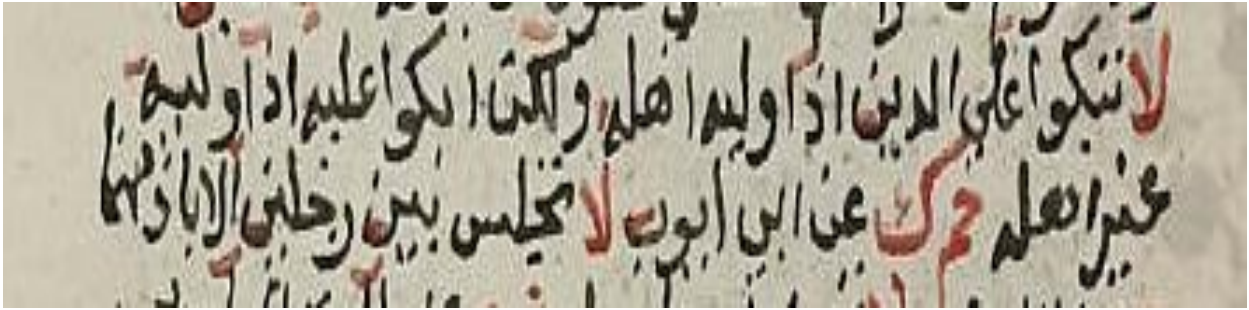 لا تبكوا علي الدين اذا وليه اهله ولكن ابكوا عليه اذا وليه
غير اهله حم ك عن ابي ايوب لا تجلس بين رجلين الا باذنهما